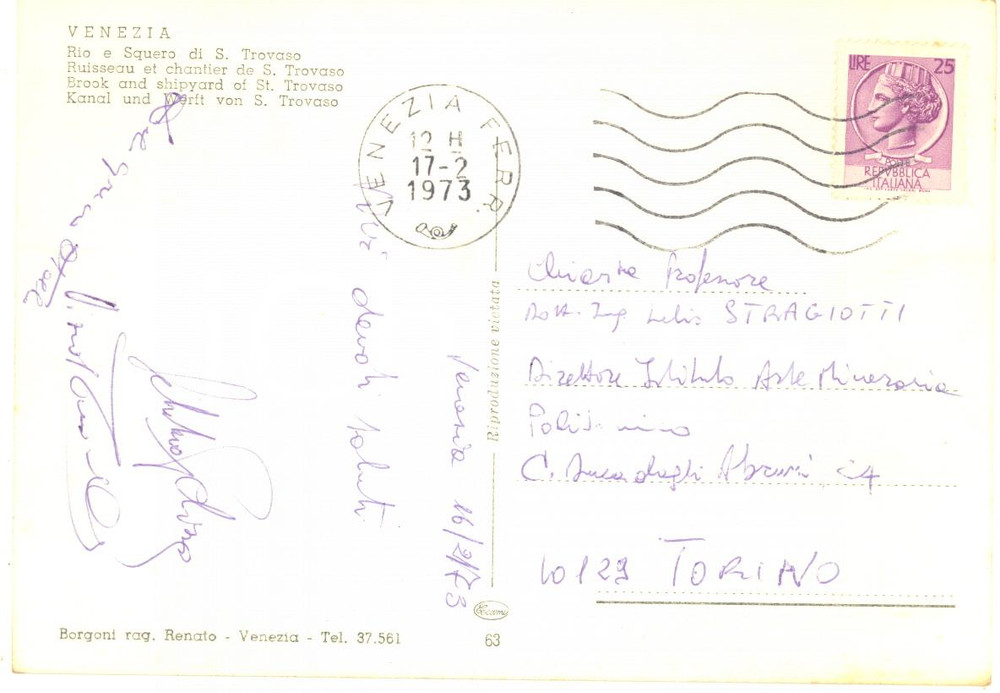 VENEZIA
Rio e Squero di S. Trovaso
Ruisseau et chantier de S. Trovaso
Brook and shipyard of St. Trovaso
Kanal und Werft von S. Trovaso
VENEZIA FERR.
12 H
17-2
1973
LIRE 25
POSTE
REPVBBLICA
ITALIANA
Venezia 16/2/73
devoti saluti
Chiar.mo Professore
Dott. Ing. Lelio STRAGIOTTI
Direttore Istituto Arte Mineraria
C. Duca degli Abruzzi 24
10129 TORINO
Riproduzione vietata
Borgoni rag. Renato - Venezia - Tel. 37.561
63